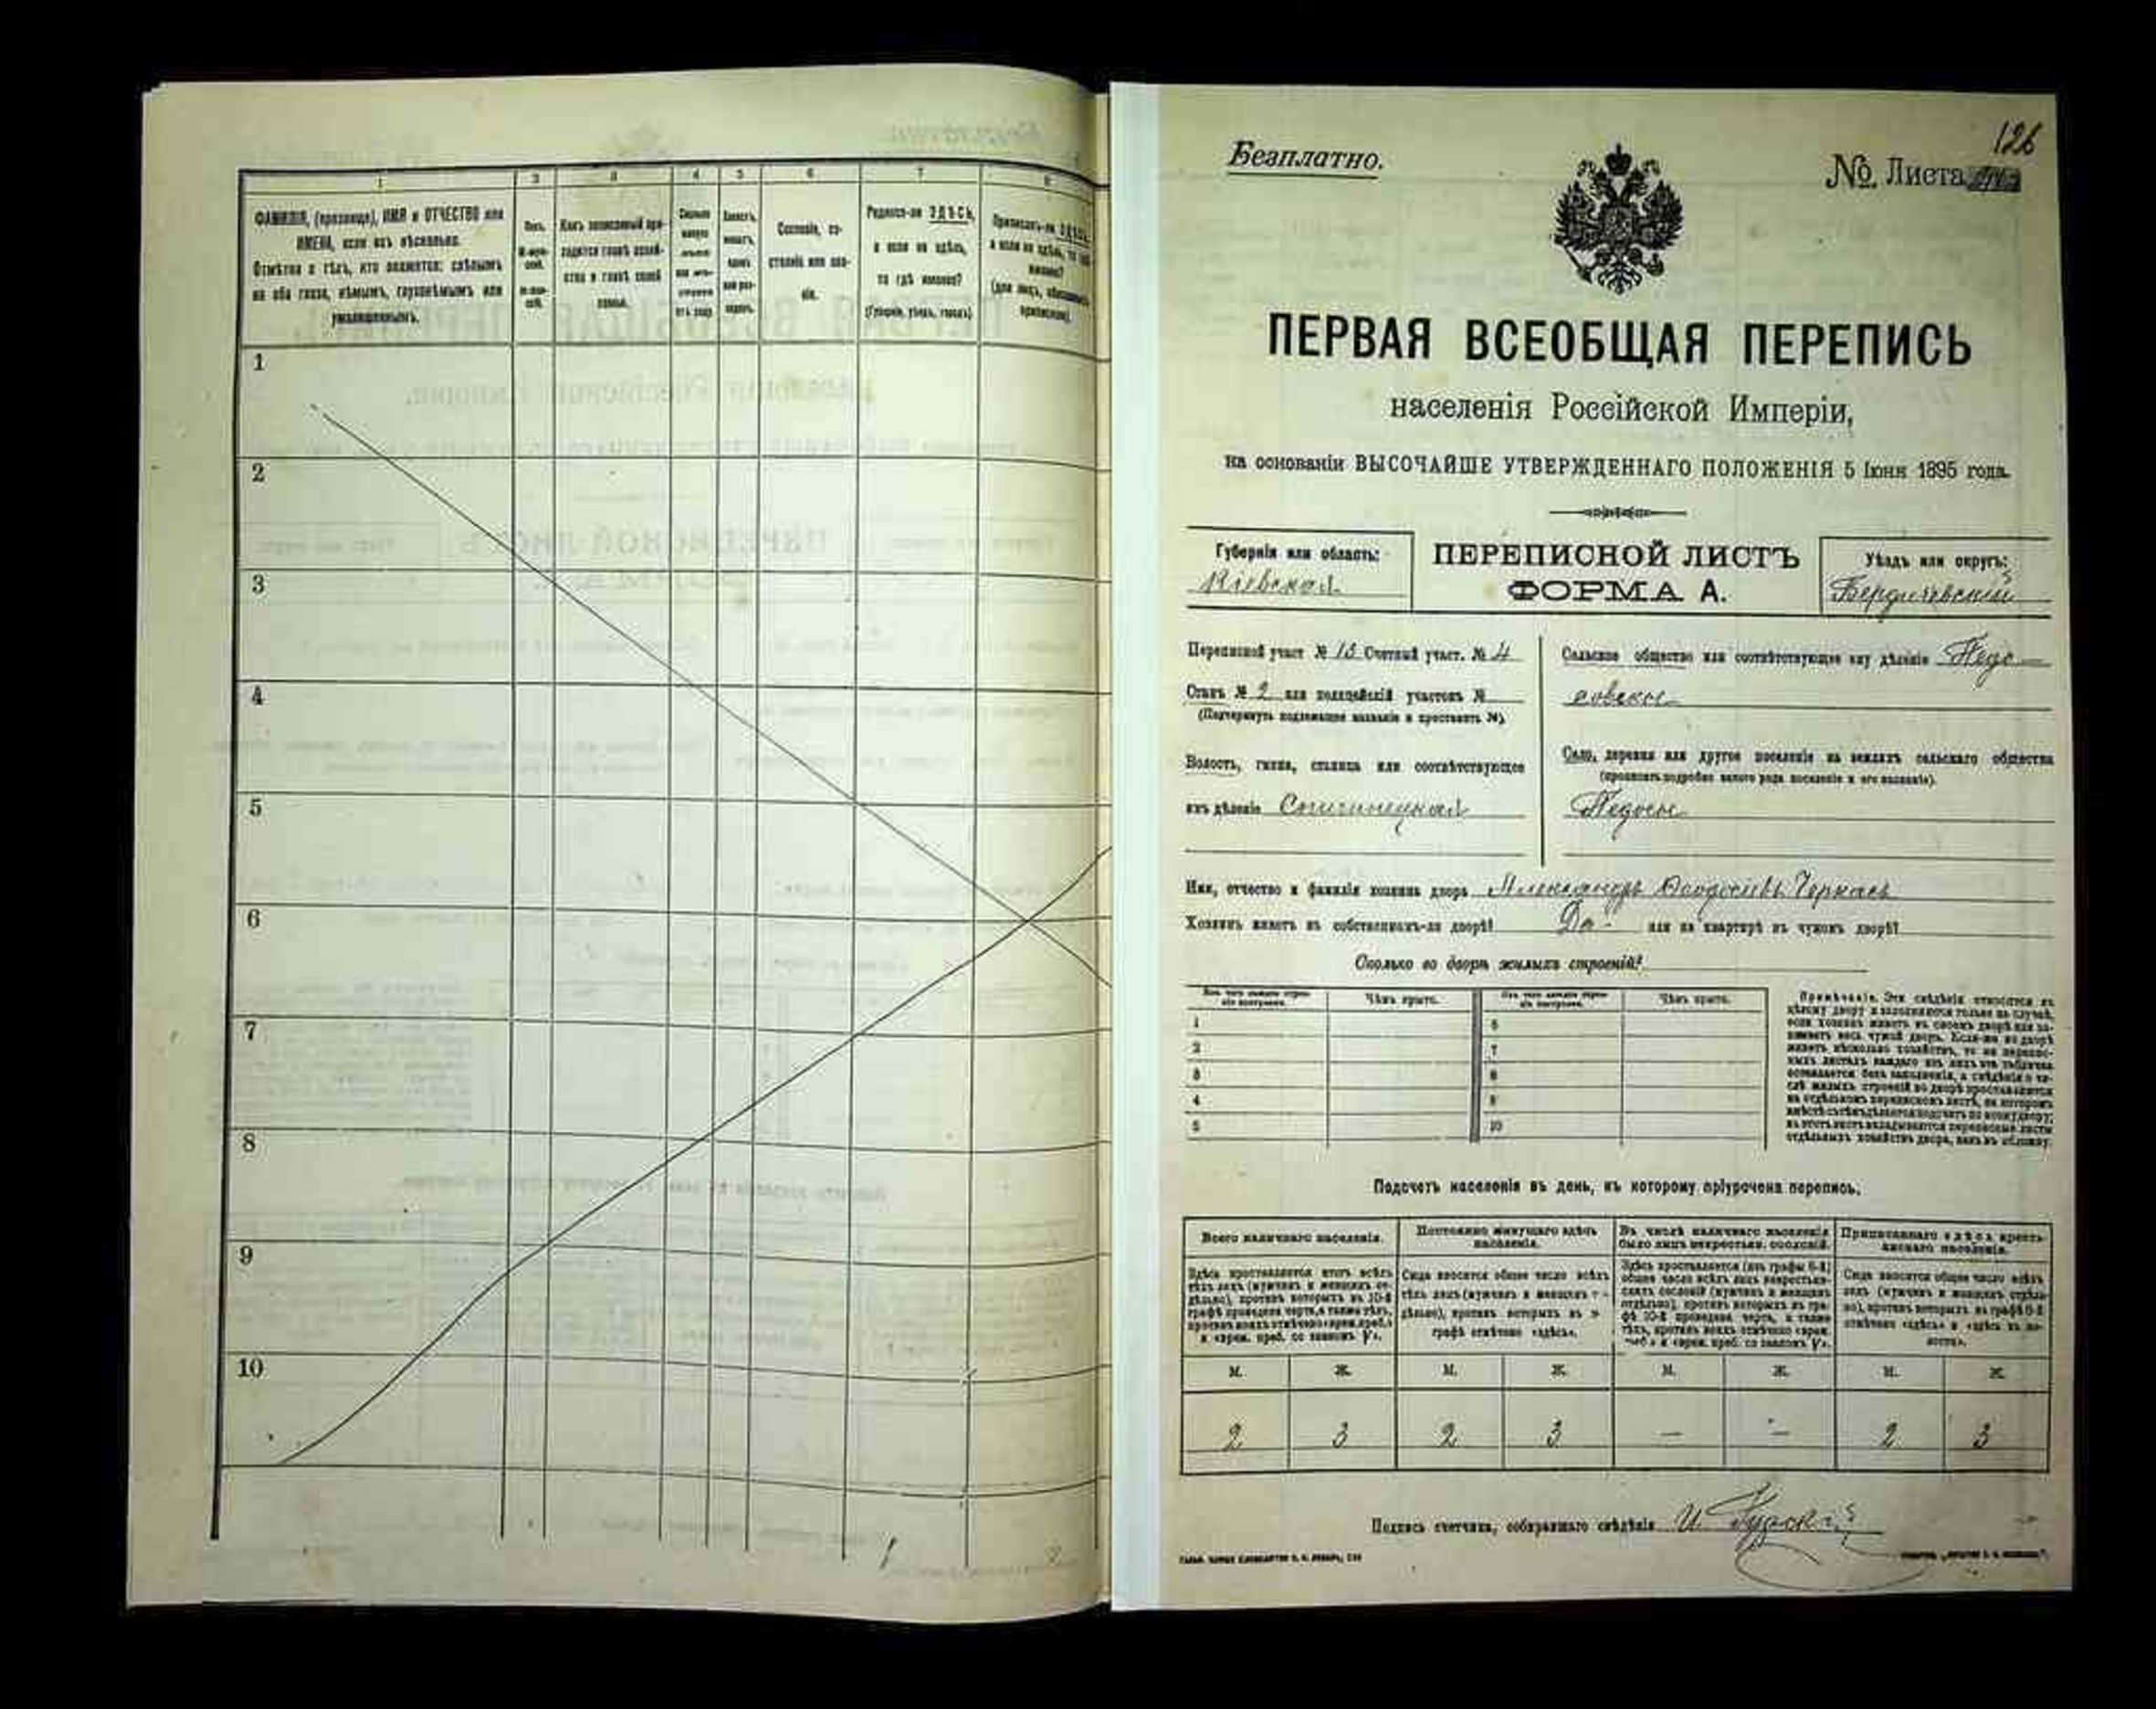 1 2 3 4 5 6 7 8
ФАМИЛІЯ, (прозвище), ИМЯ и ОТЧЕСТВО или
ИМЕНА, если ихъ нѣсколько.
Отмѣтка о тѣхъ, кто окажется: слѣпымъ
на оба глаза, нѣмымъ, глухонѣмымъ или
умалишеннымъ.
Полъ.
Какъ записанный при-
ходится главѣ хозяй-
ства и главѣ своей
семьи.
Сословіе, со-
стояніе или зва-
ніе.
Родился-ли ЗДѢСЬ,
а если не здѣсь,
то гдѣ именно?
(Губернія, уѣздъ, городъ).
Приписанъ-ли ЗДѢСЬ,
а если не здѣсь, то гдѣ
именно?
(для лицъ, обязанныхъ
припискою).
1
2
3
4
5
6
7
8
9
10
126
Безплатно.
№ Листа
ПЕРВАЯ ВСЕОБЩАЯ ПЕРЕПИСЬ
населенія Россійской Имперіи,
на основаніи ВЫСОЧАЙШЕ УТВЕРЖДЕННАГО ПОЛОЖЕНІЯ 5 Іюня 1895 года.
Губернія или область:
Кіевская
ПЕРЕПИСНОЙ ЛИСТЪ
ФОРМА А.
Уѣздъ или округъ:
Бердичевскій
Переписной участ № 13 Счетный участ. № 4
Станъ № 2 или полицейскій участокъ №
(Подчеркнуть подлежащее названіе и проставить №).
Волость, гмина, станица или соотвѣтствующее
имъ дѣленіе
Сельское общество или соотвѣтствующее ему дѣленіе
Село, деревня или другое поселеніе на земляхъ сельскаго общества
(прописать подробно какого рода поселеніе и его названіе).
Имя, отчество и фамилія хозяина двора Александръ Ѳеодосіевъ Черкасъ
Хозяинъ живетъ въ собственномъ-ли дворѣ? Да или на квартирѣ въ чужомъ дворѣ?
Сколько во дворѣ жилыхъ строеній?
Изъ чего каждое строе-
ніе построено.
Чѣмъ крыто.
Изъ чего каждое строе-
ніе построено.
Чѣмъ крыто.
1 6
2 7
3 8
4 9
5 10
Примѣчаніе. Эти свѣдѣнія относятся къ
цѣлому двору и заполняются только въ случаѣ,
если хозяинъ живетъ въ своемъ дворѣ или за-
нимаетъ весь чужой дворъ. Если-же во дворѣ
живетъ нѣсколько хозяйствъ, то на перепис-
ныхъ листахъ каждаго изъ нихъ эта табличка
оставляется безъ заполненія, а свѣдѣнія о чи-
слѣ жилыхъ строеній во дворѣ проставляются
на отдѣльномъ переписномъ листѣ, на которомъ
вмѣстѣ съ тѣмъ дѣлается подсчетъ по всему двору;
въ этотъ листъ вкладываются переписные листы
отдѣльныхъ хозяйствъ двора, какъ въ обложку.
Подсчетъ населенія въ день, къ которому пріурочена перепись.
Всего наличнаго населенія.
Постоянно живущаго здѣсь
населенія.
Въ числѣ наличнаго населенія
было лицъ некрестьян. сословій.
Приписаннаго здѣсь кресть-
янскаго населенія.
Здѣсь проставляется итогъ всѣхъ
тѣхъ лицъ (мужчинъ и женщинъ от-
дѣльно), противъ которыхъ въ 10-й
графѣ проведена черта, а также тѣхъ,
противъ коихъ отмѣчено «врем. преб.»
и «врем. преб. со знакомъ V».
Сюда вносится общее число всѣхъ
тѣхъ лицъ (мужчинъ и женщинъ от-
дѣльно), противъ которыхъ въ 9-й
графѣ отмѣчено «здѣсь».
Здѣсь проставляется (изъ графы 6-й)
общее число всѣхъ лицъ некрестьян-
скихъ сословій (мужчинъ и женщинъ
отдѣльно), противъ которыхъ въ гра-
фѣ 10-й проведена черта, а также
тѣхъ, противъ коихъ отмѣчено «врем.
преб.» и «врем. преб. со знакомъ V».
Сюда вносится общее число всѣхъ
лицъ (мужчинъ и женщинъ отдѣль-
но), противъ которыхъ въ графѣ 8-й
отмѣчено «здѣсь» и «здѣсь въ во-
лости».
М. Ж. М. Ж. М. Ж. М. Ж.
2 3 2 3 — — 2 3
Подпись счетчика, собиравшаго свѣдѣнія